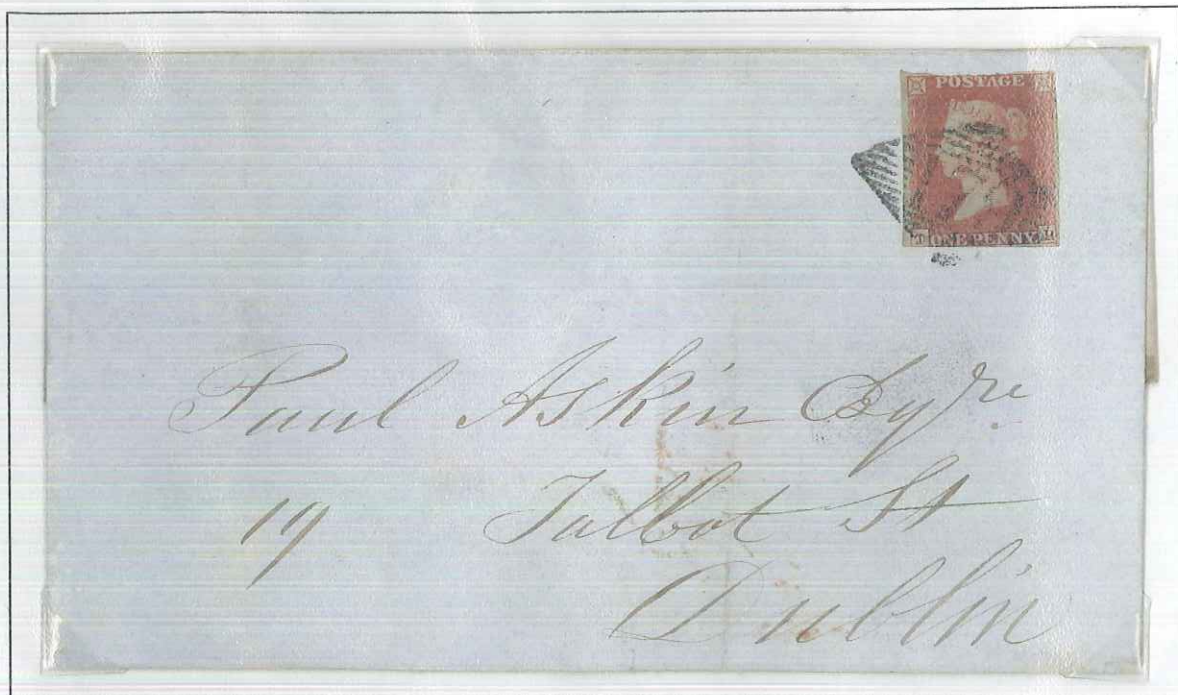 POSTAGE
ONE PENNY
Paul Askin Esqre
19 Talbot St
Dublin